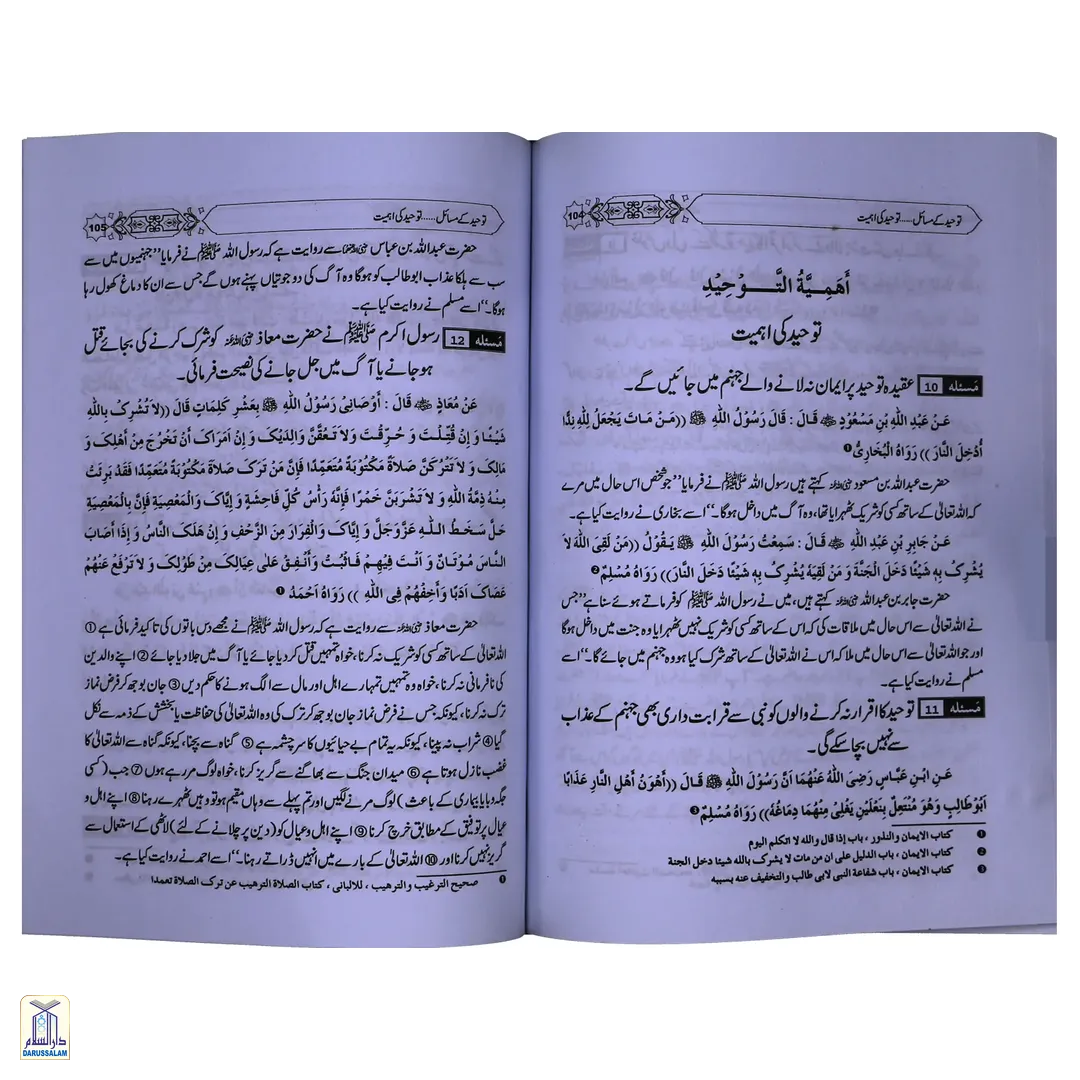 104
توحید کے مسائل ..... توحید کی اہمیت
أَهَمِيَّةُ التَّوْحِيْدِ
توحید کی اہمیت
مَسئله 10 عقیدہ توحید پر ایمان نہ لانے والے جہنم میں جائیں گے۔
عَنْ عَبْدِ اللّٰهِ بْنِ مَسْعُوْدٍ ؓ قَالَ : قَالَ رَسُوْلُ اللّٰهِ ﷺ ((مَنْ مَاتَ يَجْعَلُ لِلّٰهِ نِدًّا
أُدْخِلَ النَّارَ )) رَوَاهُ الْبُخَارِيُّ ❶
حضرت عبداللہ بن مسعود رضی اللہ عنہ کہتے ہیں رسول اللہ ﷺ نے فرمایا ’’جو شخص اس حال میں مرے
کہ اللہ تعالیٰ کے ساتھ کسی کو شریک ٹھہراتا تھا، وہ آگ میں داخل ہوگا۔‘‘ اسے بخاری نے روایت کیا ہے۔
عَنْ جَابِرِ بْنِ عَبْدِ اللّٰهِ ؓ قَالَ : سَمِعْتُ رَسُوْلَ اللّٰهِ ﷺ يَقُوْلُ ((مَنْ لَقِيَ اللّٰهَ لاَ
يُشْرِكُ بِهٖ شَيْئًا دَخَلَ الْجَنَّةَ وَ مَنْ لَقِيَهُ يُشْرِكُ بِهٖ شَيْئًا دَخَلَ النَّارَ)) رَوَاهُ مُسْلِمٌ ❷
حضرت جابر بن عبداللہ رضی اللہ عنہ کہتے ہیں، میں نے رسول اللہ ﷺ کو فرماتے ہوئے سنا ہے ’’جس
نے اللہ تعالیٰ سے اس حال میں ملاقات کی کہ اس کے ساتھ کسی کو شریک نہیں ٹھہرایا وہ جنت میں داخل ہوگا
اور جو اللہ تعالیٰ سے اس حال میں ملا کہ اس نے اللہ تعالیٰ کے ساتھ شرک کیا ہو وہ جہنم میں جائے گا۔‘‘ اسے
مسلم نے روایت کیا ہے۔
مَسئله 11 توحید کا اقرار نہ کرنے والوں کو نبی سے قرابت داری بھی جہنم کے عذاب
سے نہیں بچا سکے گی۔
عَنِ ابْنِ عَبَّاسٍ رَضِيَ اللّٰهُ عَنْهُمَا أَنَّ رَسُوْلَ اللّٰهِ ﷺ قَالَ ((أَهْوَنُ أَهْلِ النَّارِ عَذَابًا
أَبُوْ طَالِبٍ وَهُوَ مُنْتَعِلٌ بِنَعْلَيْنِ يَغْلِيْ مِنْهُمَا دِمَاغُهُ)) رَوَاهُ مُسْلِمٌ ❸
❶ كتاب الايمان والنذور ، باب إذا قال والله لا اتكلم اليوم
❷ كتاب الايمان ، باب الدليل على ان من مات لا يشرك بالله شيئا دخل الجنة
❸ كتاب الايمان ، باب شفاعة النبى لابى طالب والتخفيف عنه بسببه
105
توحید کے مسائل ...... توحید کی اہمیت
حضرت عبداللہ بن عباس رضی اللہ عنہما سے روایت ہے کہ رسول اللہ ﷺ نے فرمایا ’’جہنمیوں میں سے
سب سے ہلکا عذاب ابوطالب کو ہوگا وہ آگ کی دو جوتیاں پہنے ہوں گے، جس سے ان کا دماغ کھول رہا
ہوگا۔‘‘ اسے مسلم نے روایت کیا ہے۔
مَسئله 12 رسول اکرم ﷺ نے حضرت معاذ رضی اللہ عنہ کو شرک کرنے کی بجائے قتل
ہو جانے یا آگ میں جل جانے کی نصیحت فرمائی۔
عَنْ مُعَاذٍ ؓ قَالَ : أَوْصَانِيْ رَسُوْلُ اللّٰهِ ﷺ بِعَشْرِ كَلِمَاتٍ قَالَ ((لاَ تُشْرِكْ بِاللّٰهِ
شَيْئًا وَ إِنْ قُتِلْتَ وَ حُرِّقْتَ وَلاَ تَعُقَّنَّ وَالِدَيْكَ وَ إِنْ أَمَرَاكَ أَنْ تَخْرُجَ مِنْ أَهْلِكَ وَ
مَالِكَ وَ لاَ تَتْرُكَنَّ صَلاَةً مَكْتُوْبَةً مُتَعَمِّدًا فَإِنَّ مَنْ تَرَكَ صَلاَةً مَكْتُوْبَةً مُتَعَمِّدًا فَقَدْ بَرِئَتْ
مِنْهُ ذِمَّةُ اللّٰهِ وَ لاَ تَشْرَبَنَّ خَمْرًا فَإِنَّهُ رَأْسُ كُلِّ فَاحِشَةٍ وَ إِيَّاكَ وَالْمَعْصِيَةَ فَإِنَّ بِالْمَعْصِيَةِ
حَلَّ سَخَطُ اللّٰهِ عَزَّوَجَلَّ وَ إِيَّاكَ وَالْفِرَارَ مِنَ الزَّحْفِ وَ إِنْ هَلَكَ النَّاسُ وَ إِذَا أَصَابَ
النَّاسَ مُوْتَانٌ وَ أَنْتَ فِيْهِمْ فَاثْبُتْ وَ أَنْفِقْ عَلٰى عِيَالِكَ مِنْ طَوْلِكَ وَ لاَ تَرْفَعْ عَنْهُمْ
عَصَاكَ أَدَبًا وَ أَخِفْهُمْ فِي اللّٰهِ )) رَوَاهُ أَحْمَدُ ❶
حضرت معاذ رضی اللہ عنہ سے روایت ہے کہ رسول اللہ ﷺ نے مجھے دس باتوں کی تاکید فرمائی ہے ①
اللہ تعالیٰ کے ساتھ کسی کو شریک نہ کرنا، خواہ تمہیں قتل کر دیا جائے یا آگ میں جلا دیا جائے ② اپنے والدین
کی نافرمانی نہ کرنا، خواہ وہ تمہیں تمہارے اہل اور مال سے الگ ہونے کا حکم دیں ③ جان بوجھ کر فرض نماز
ترک نہ کرنا، کیونکہ جس نے فرض نماز جان بوجھ کر ترک کی وہ اللہ تعالیٰ کی حفاظت یا بخشش کے ذمہ سے نکل
گیا ④ شراب نہ پینا، کیونکہ یہ تمام بے حیائیوں کا سرچشمہ ہے ⑤ گناہ سے بچنا، کیونکہ گناہ سے اللہ تعالیٰ کا
غضب نازل ہوتا ہے ⑥ میدان جنگ سے بھاگنے سے گریز کرنا، خواہ لوگ مر رہے ہوں ⑦ جب (کسی
جگہ وبا یا بیماری کے باعث) لوگ مرنے لگیں اور تم پہلے سے وہاں مقیم ہو تو وہیں ٹھہرے رہنا ⑧ اپنے اہل و
عیال پر توفیق کے مطابق خرچ کرنا ⑨ اپنے اہل و عیال کو (دین پر چلانے کے لئے) لاٹھی کے استعمال سے
گریز نہیں کرنا اور ⑩ اللہ تعالیٰ کے بارے میں انہیں ڈراتے رہنا۔‘‘ اسے احمد نے روایت کیا ہے۔
❶ صحیح الترغیب والترهیب ، للالبانی ، کتاب الصلاة الترهیب عن ترک الصلاة تعمدا
دارالسلام
DARUSSALAM